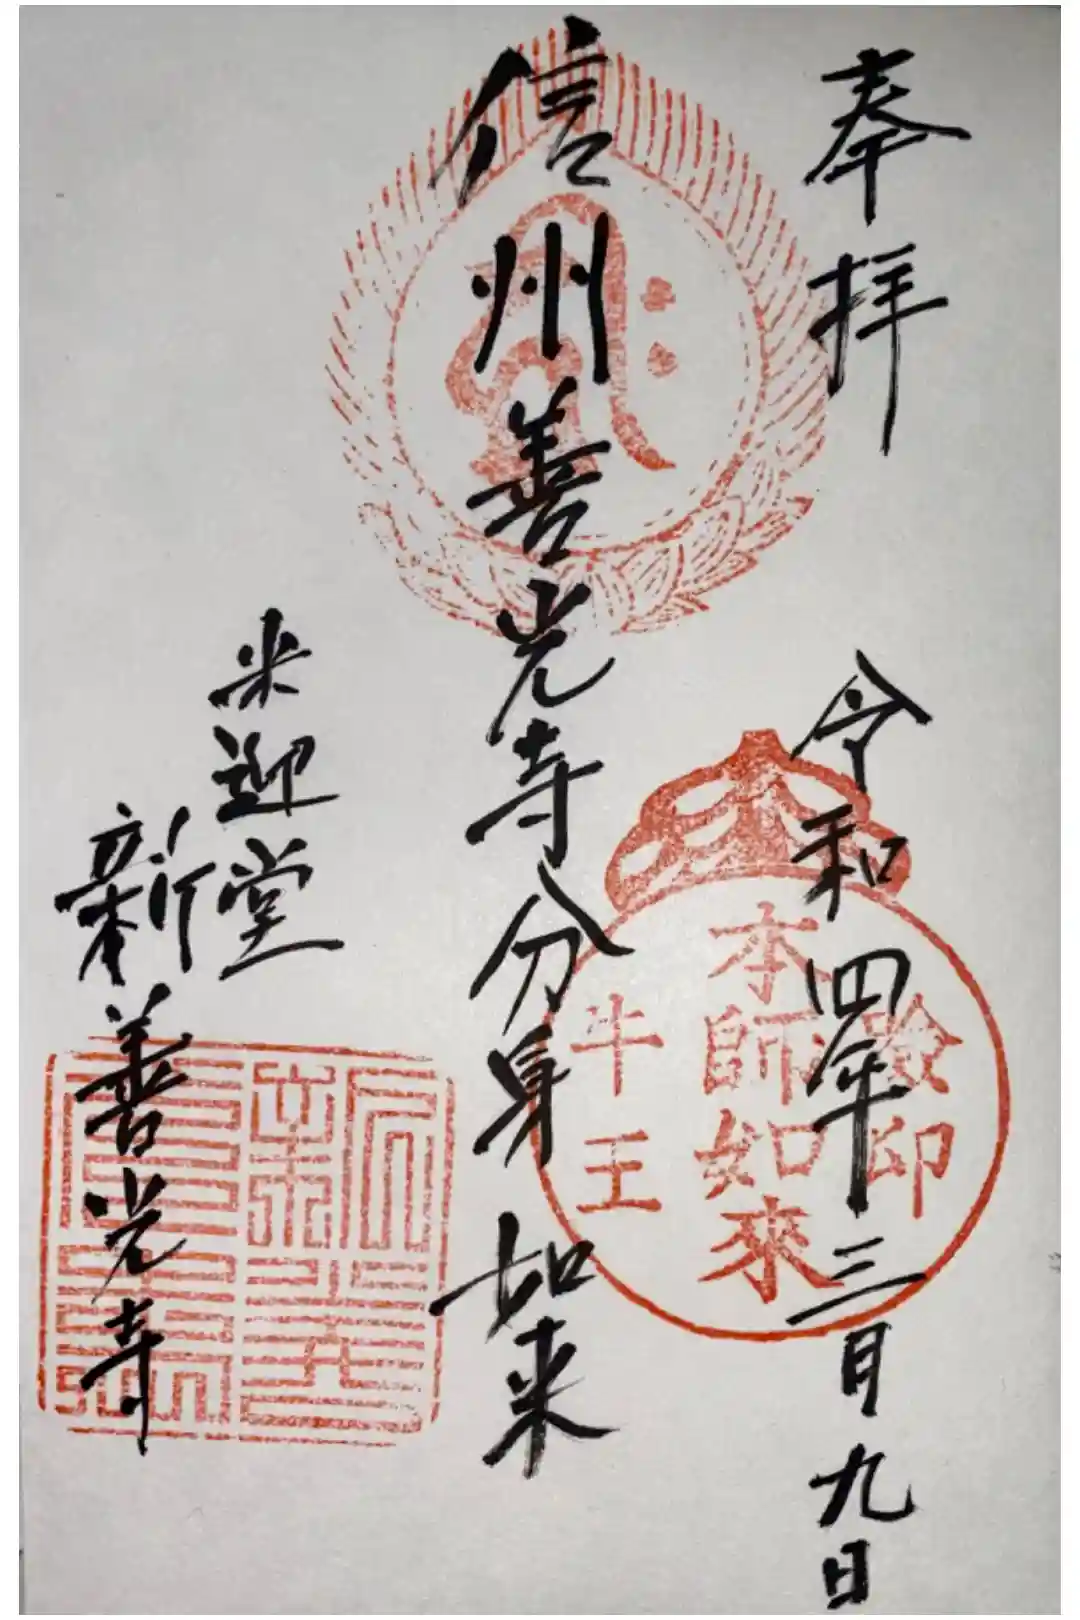 奉拝
令和四年三月九日
信州善光寺分身如来
来迎堂
新善光寺
印
本師如來
牛王